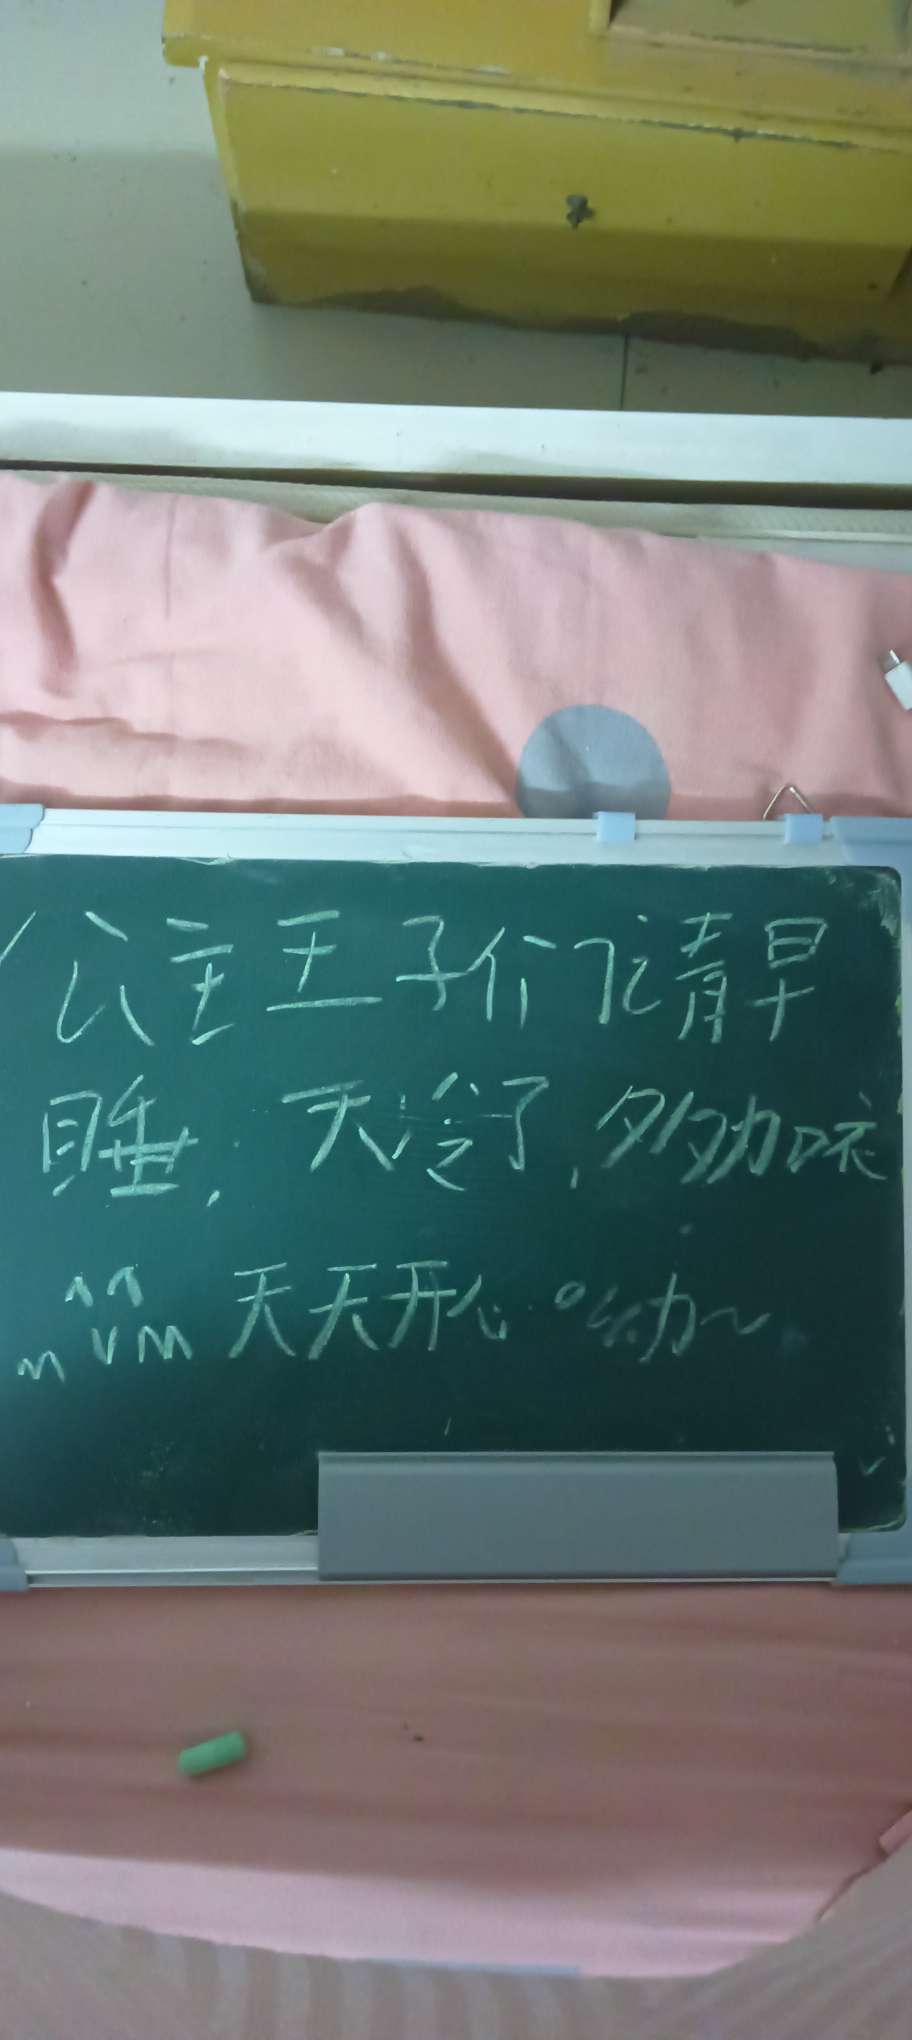 公主王子们请早
睡, 天冷了,多加衣
天天开心